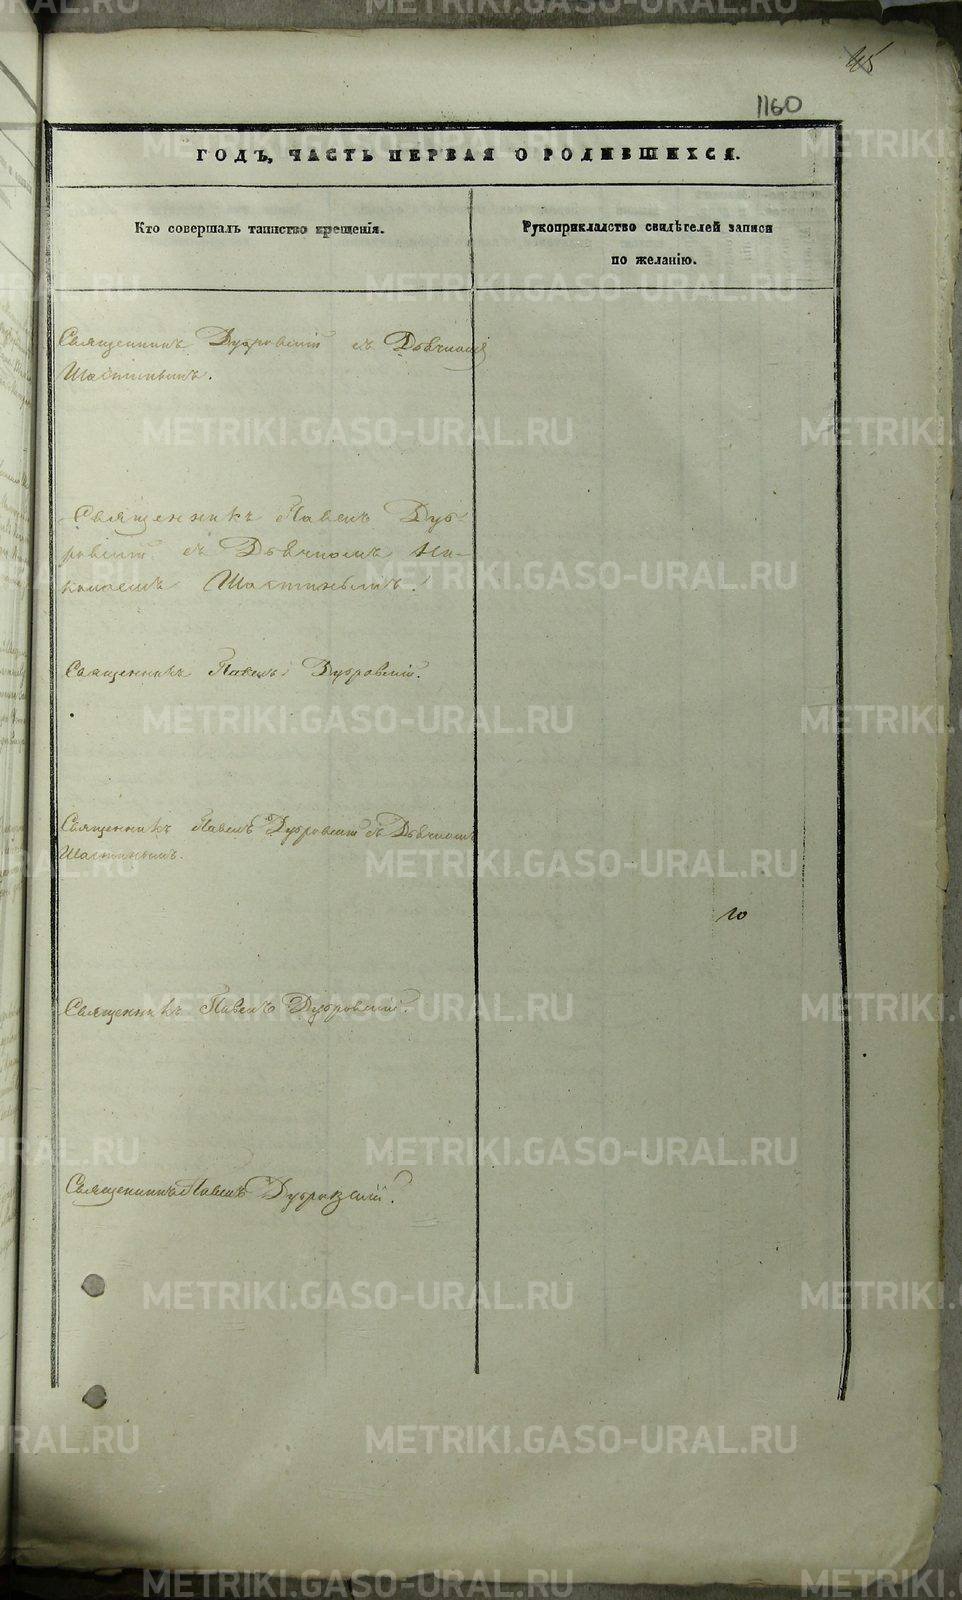 45
1160
ГОДЪ, ЧАСТЬ ПЕРВАЯ О РОДИВШИХСЯ.
Кто совершалъ таинство крещенія.
Рукоприкладство свидѣтелей записи
по желанію.
Священникъ Дубровскій съ Дьячкомъ
Шастинымъ.
Священникъ Павелъ Дуб-
ровскій съ Дьячкомъ Ни-
колаемъ Шастинымъ.
Священникъ Павелъ Дубровскій.
Священникъ Павелъ Дубровскій съ Дьячкомъ
Шастинымъ.
10
Священникъ Павелъ Дубровскій.
Священникъ Павелъ Дубровскій.
METRIKI.GASO-URAL.RU